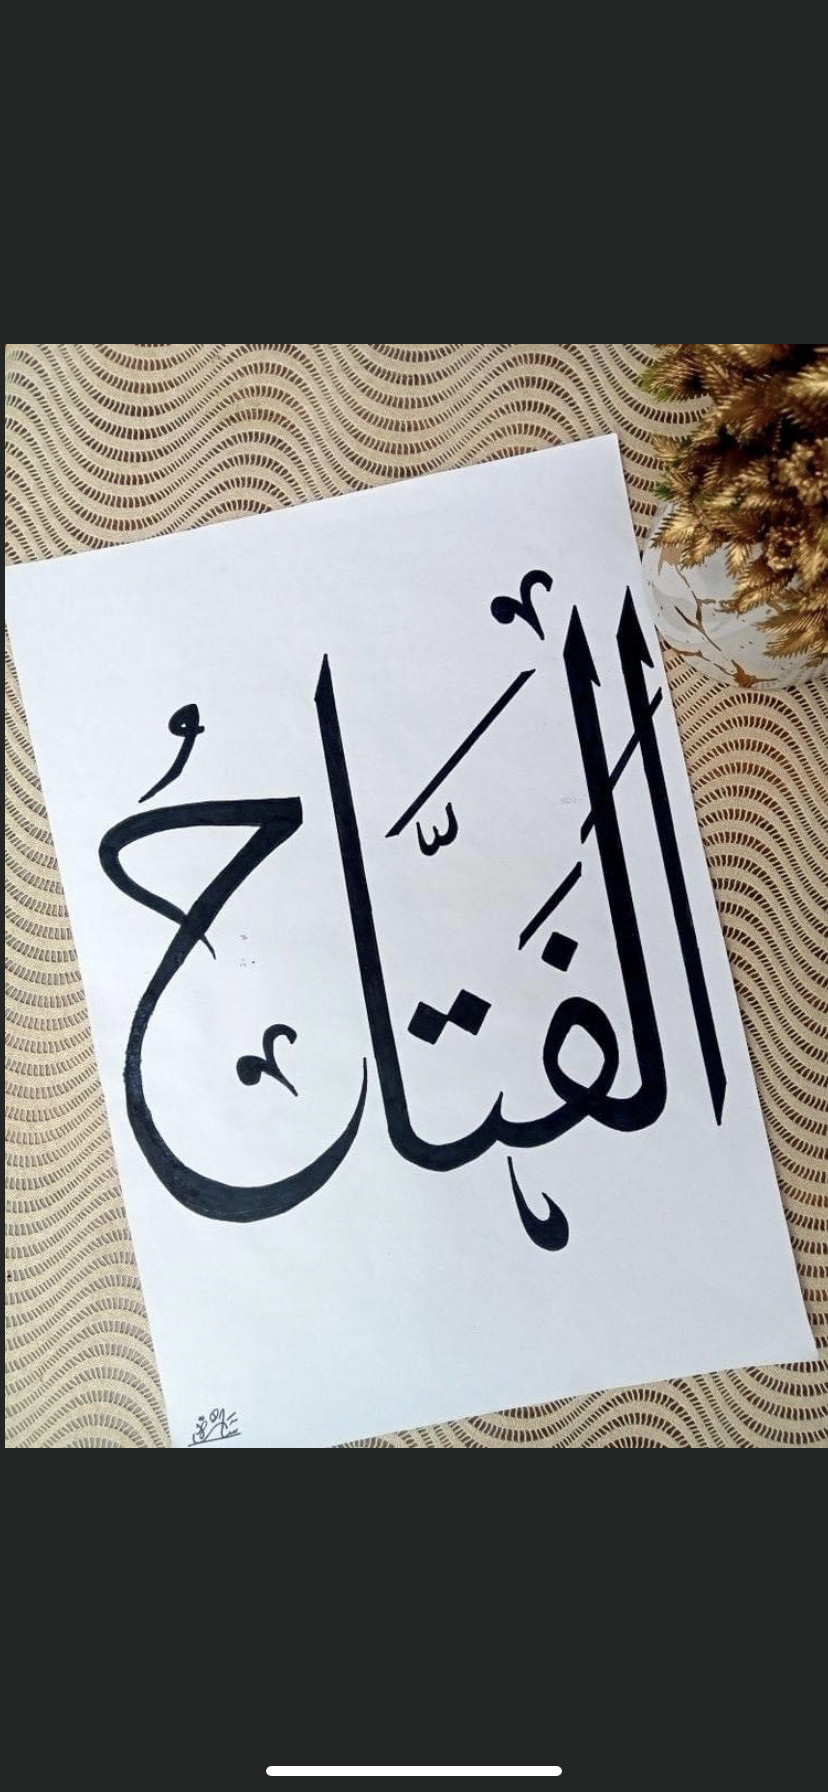 الْفَتَّاحُ